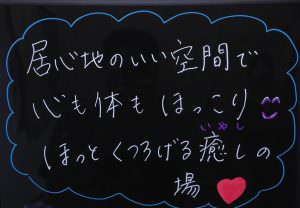 居心地のいい空間で
心も体もほっこり
ほっとくつろげる癒しの
いやし
場